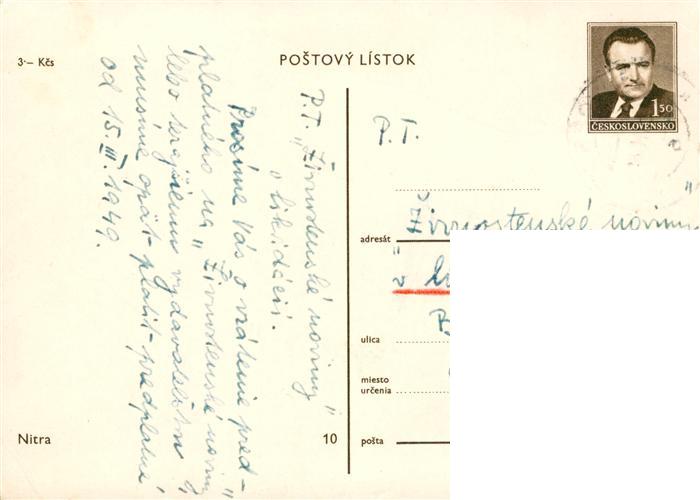 3·– Kčs
POŠTOVÝ LÍSTOK
1 50
ČESKOSLOVENSKO
P.T. „Živnotenské noviny"
„likvidácii.
Prosíme Vás o vrátenie pred-
platného na „Živnotenské noviny"
lebo terajšiemu vydavateľstvu
musíme opäť platiť predplatné
od 15 III. 1949.
P.T.
„Živnostenské noviny"
adresát
v
ulica
miesto
určenia
pošta
Nitra
10